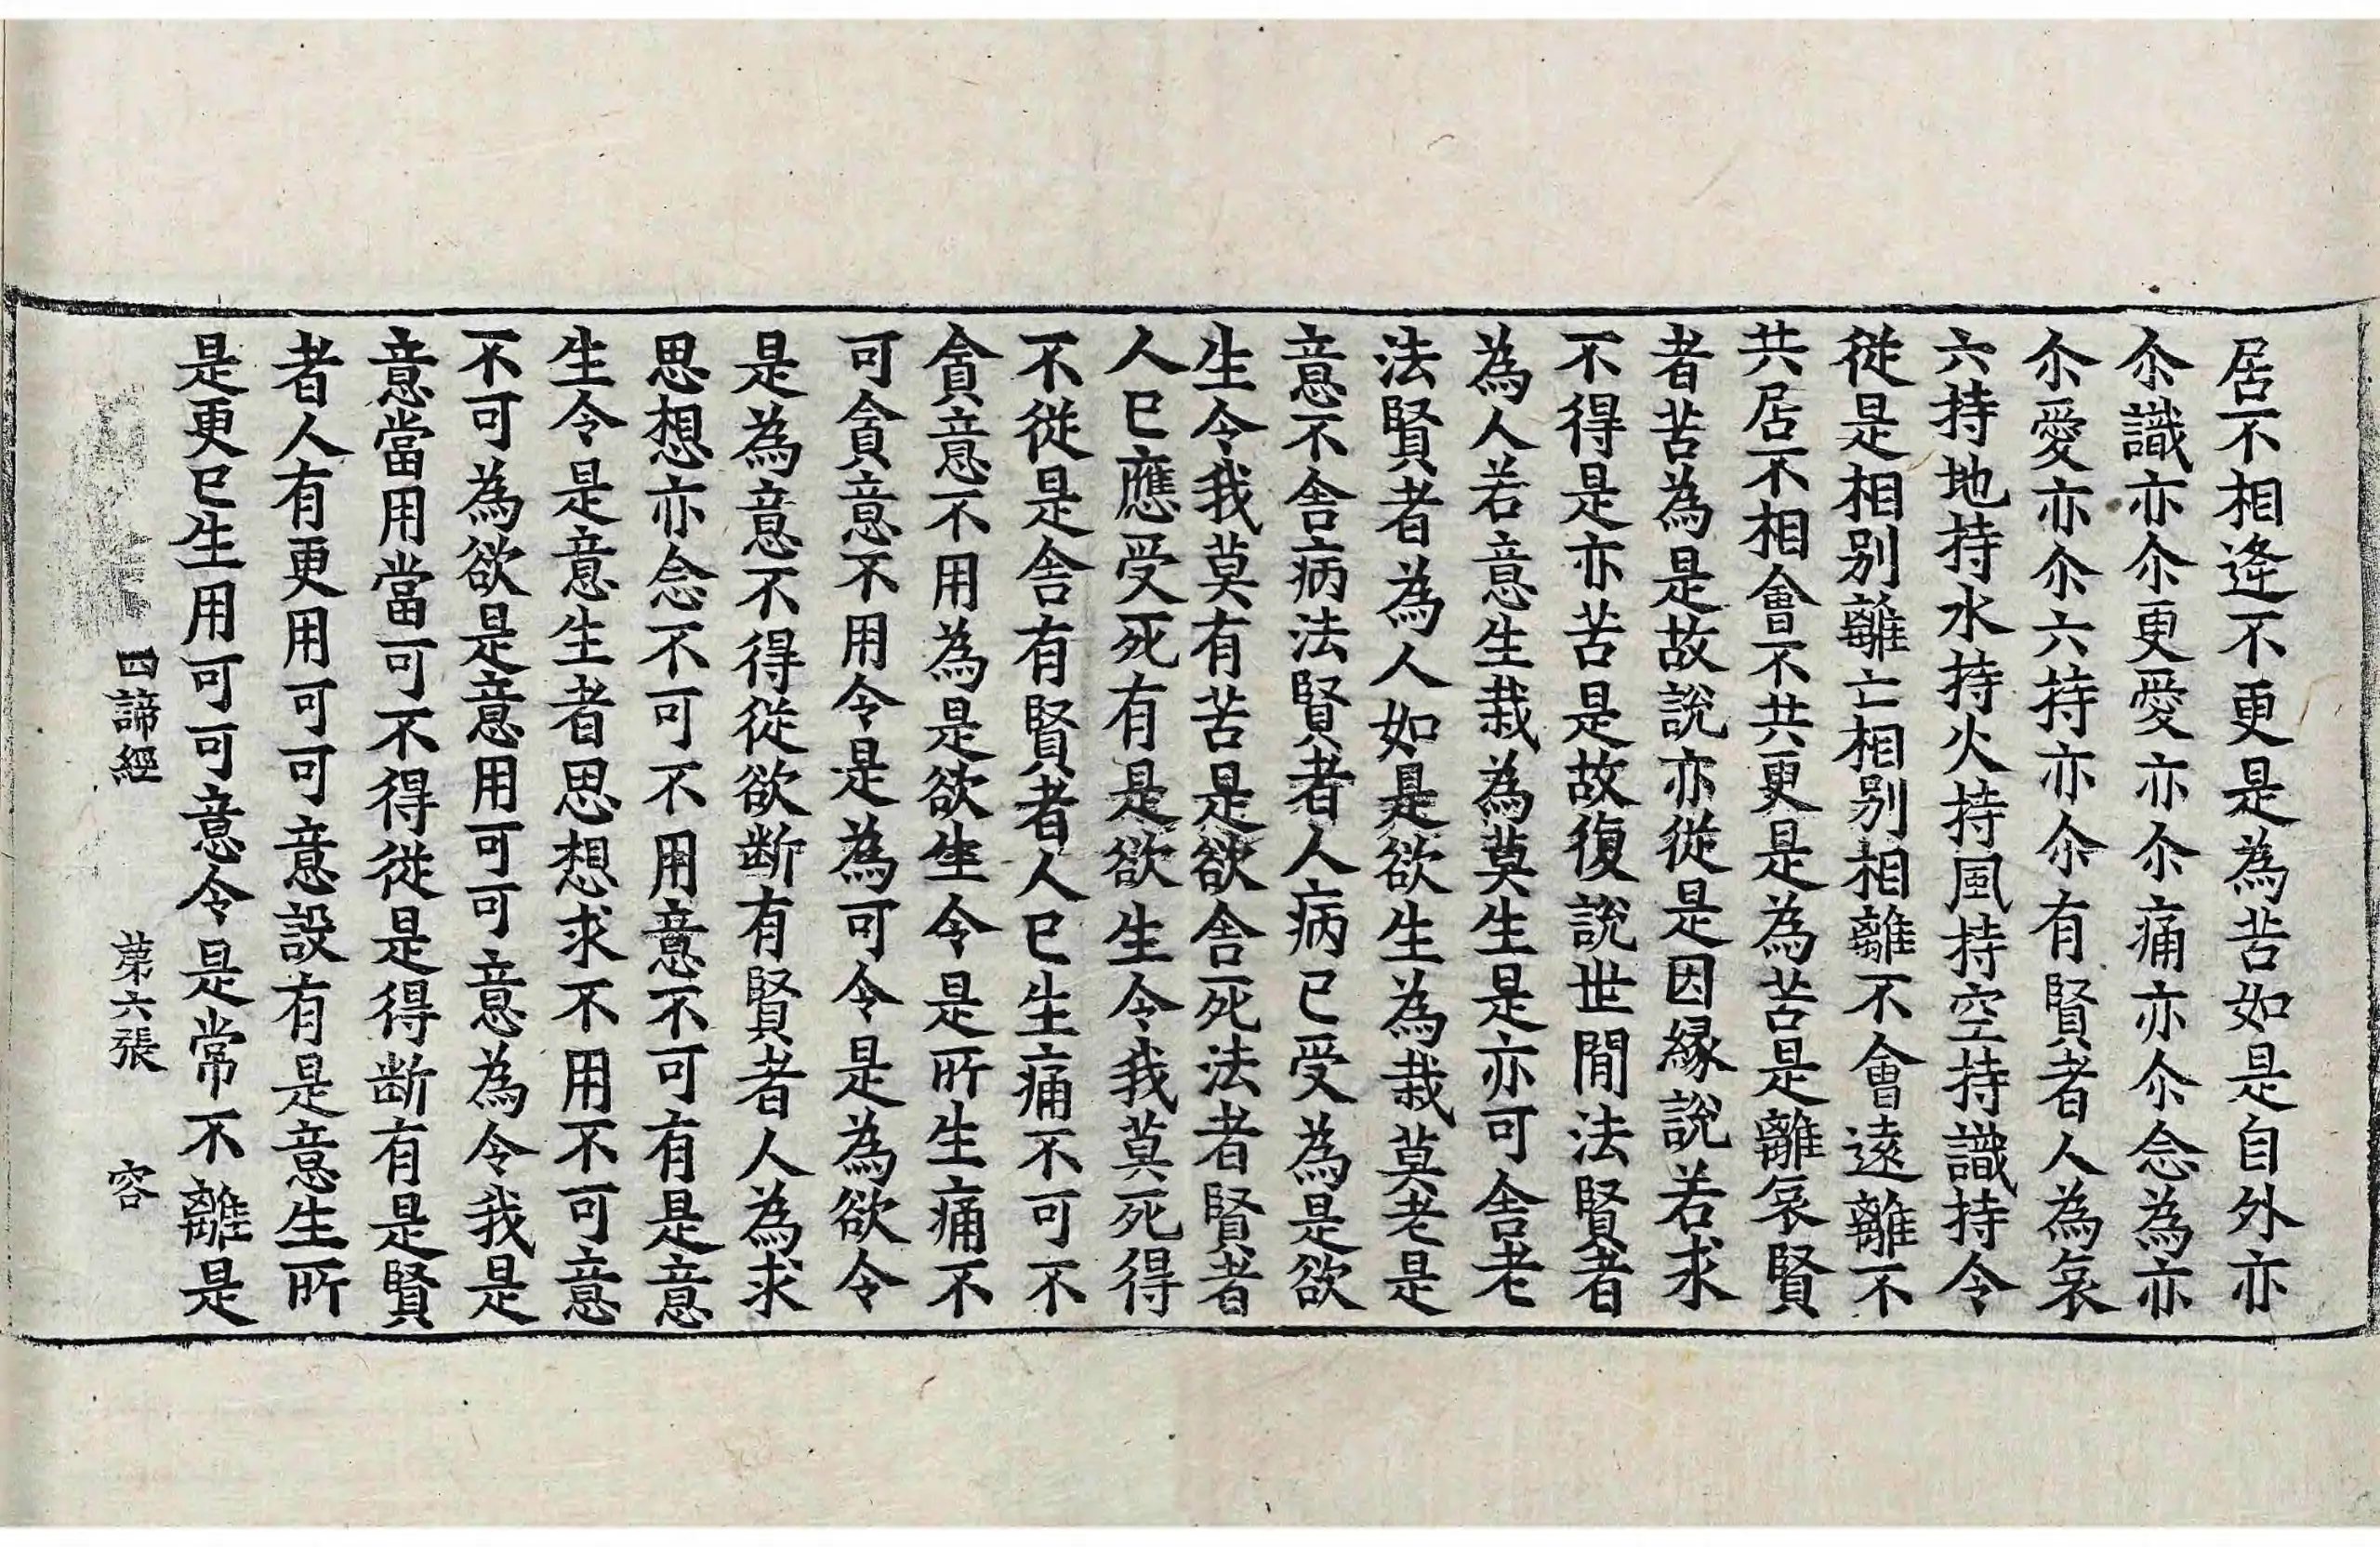 居不相逄不更是為苦如是自外亦
尒識亦尒更愛亦尒痛亦尒念為亦
尒愛亦尒六持亦尒有賢者人為㝠
六持地持水持火持風持空持識持令
從是相別離亡相別相離不會遠離不
共居不相會不共更是為苦是離㝠賢
者苦為是故說亦從是因緣說若求
不得是亦苦是故復說世間法賢者
為人若意生栽為莫生是亦可舎老
法賢者為人如是欲生為栽莫老是
意不舎病法賢者人病已受為是欲
生令我莫有苦是欲舎死法者賢者
人已應受死有是欲生令我莫死得
不從是舎有賢者人已生痛不可不
貪意不用為是欲生令是所生痛不
可貪意不用令是為可令是為欲令
是為意不得從欲断有賢者人為求
思想亦念不可不用意不可有是意
生令是意生者思想求不用不可意
不可為欲是意用可可意為令我是
意當用當可不得從是得断有是賢
者人有更用可可意設有是意生所
是更已生用可可意令是常不離是
四諦經 苐六張 容